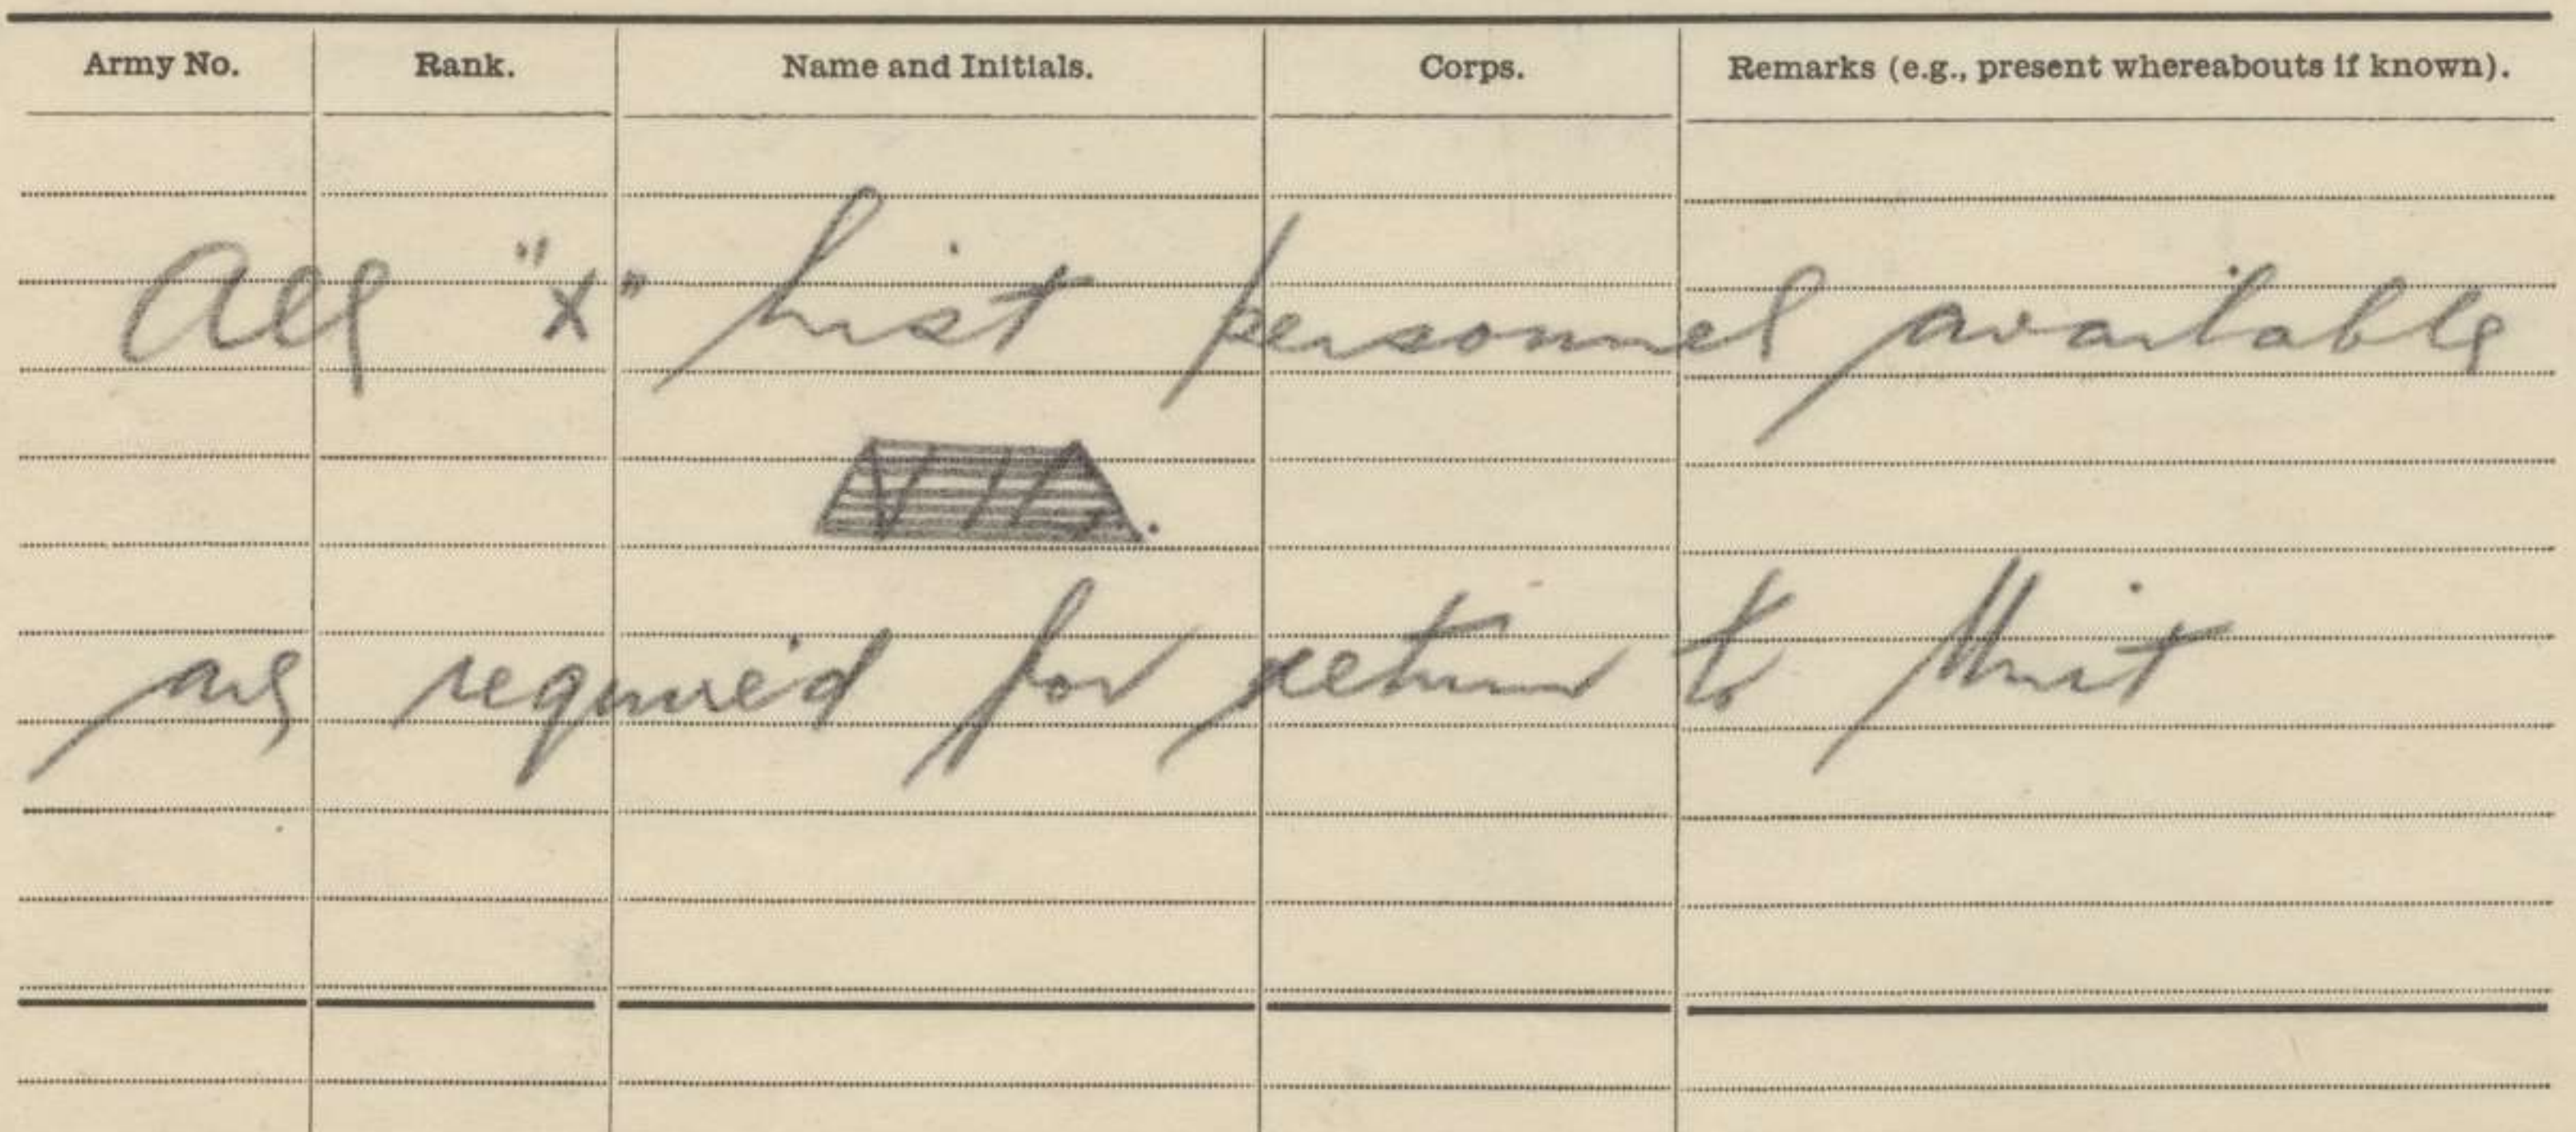 Army No. Rank. Name and Initials. Corps. Remarks (e.g., present whereabouts if known).
All "X" List personnel available
are required for return to Unit